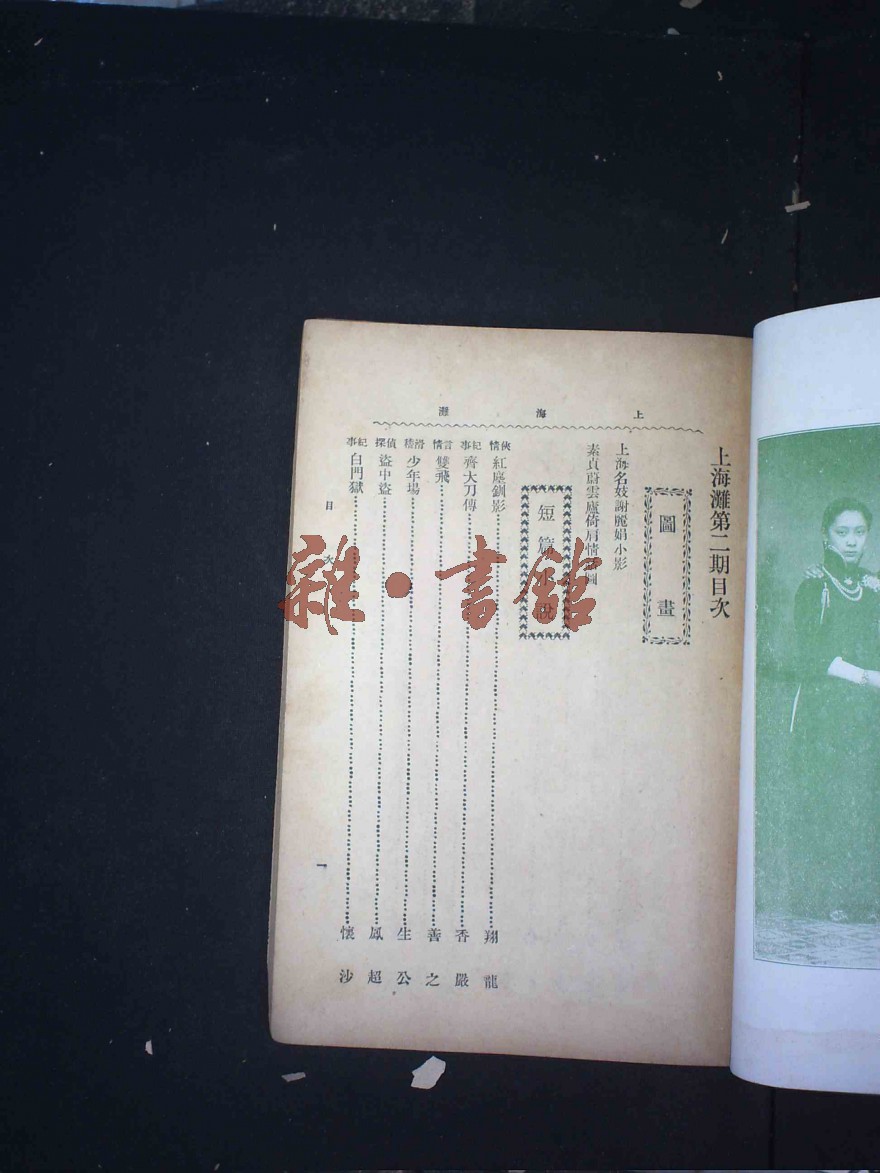 上海灘
上海灘第二期目次
圖畫
上海名妓謝麗娟小影
素貞蔚雲廬倚肩情 圖
短篇小說
俠情 紅 釧影 翔龍
記事 齊大刀傳 香嚴
言情 雙飛 善之
滑稽 少年場 生公
偵探 盜中盜 鳳超
紀事 白門獄 懷沙
目次
一
雜·書館